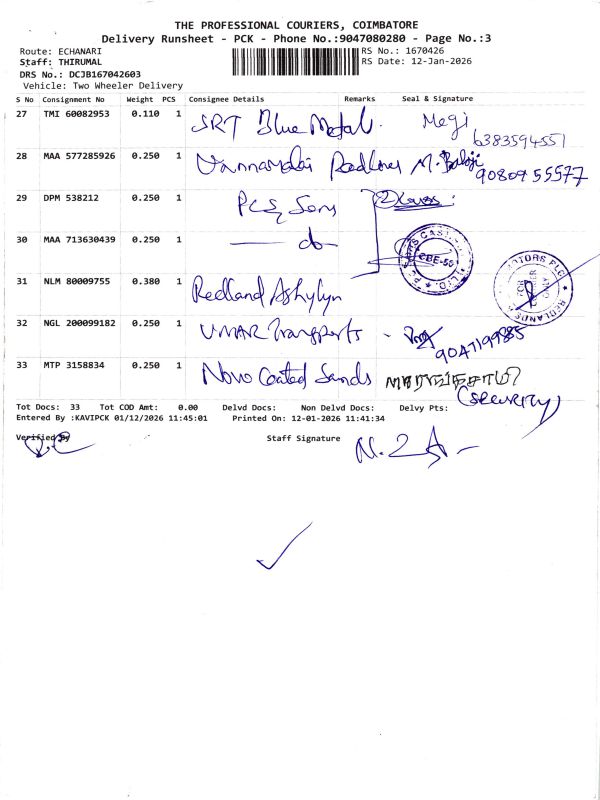 THE PROFESSIONAL COURIERS, COIMBATORE
Delivery Runsheet - PCK - Phone No.:9047080280 - Page No.:3
Route: ECHANARI RS No.: 1670426
Staff: THIRUMAL RS Date: 12-Jan-2026
DRS No.: DCJB167042603
Vehicle: Two Wheeler Delivery
S No Consignment No Weight PCS Consignee Details Remarks Seal & Signature
27 TMI 60082953 0.110 1 SRT Blue Metal. Megi 6383594551
28 MAA 577285926 0.250 1 Vannamalai Redlines M. Balaji 9080955577
29 DPM 538212 0.250 1 PCS Sons
30 MAA 713630439 0.250 1 — do —
CBE-50
31 NLM 80009755 0.380 1 Redland Ashylyn
MOTORS PLC REDLANDS
32 NGL 200099182 0.250 1 UMAR Transports - 9047199885
33 MTP 3158834 0.250 1 Novo Coated Sands
(Security)
Tot Docs: 33 Tot COD Amt: 0.00 Delvd Docs: Non Delvd Docs: Delvy Pts:
Entered By :KAVIPCK 01/12/2026 11:45:01 Printed On: 12-01-2026 11:41:34
Verified By Staff Signature